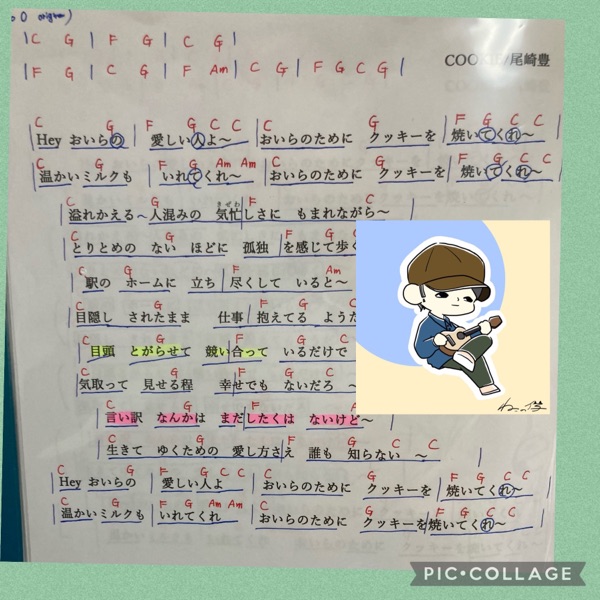 | C G | F G | C G |
| F G | C G | F Am | C G | F G C G |
COOKIE/尾崎豊
C G F G C C C G F G C C
Hey おいらの 愛しい人よ～ おいらのために クッキーを 焼いてくれ～
C G F G Am Am C G F G C C
温かいミルクも いれてくれ～ おいらのために クッキーを 焼いてくれ～
C G きぜわ F C
溢れかえる～人混みの 気忙しさに もまれながら～
C G F
とりとめの ない ほどに 孤独 を感じて歩く
C G F Am
駅の ホームに 立ち 尽くして いると～
C G F G
目隠し されたまま 仕事 抱えてる ような
C G F G
目頭 とがらせて 競い合って いるだけで
C G F G
気取って 見せる程 幸せでも ないだろ ～
C G F
言い訳 なんかは まだしたくは ないけど～
C G F G C C
生きて ゆくための 愛し方さえ 誰も 知らない ～
C G F G C C C G F G C C
Hey おいらの 愛しい人よ おいらのために クッキーを 焼いてくれ～
C G F G Am Am C G F G C C
温かいミルクも いれてくれ おいらのために クッキーを焼いてくれ～
PIC•COLLAGE